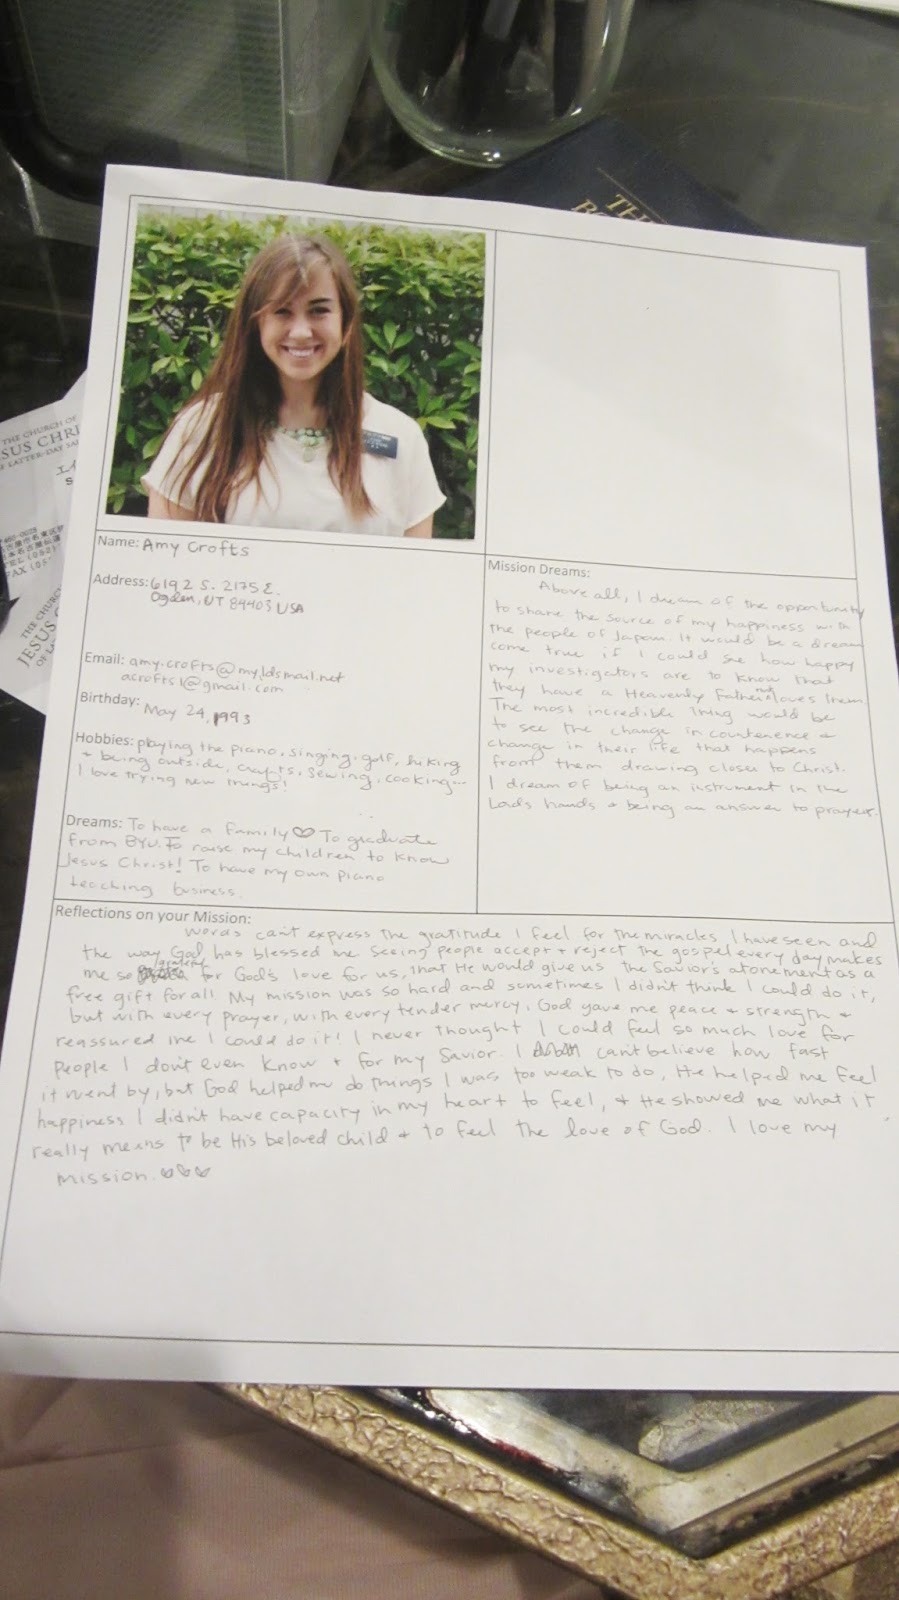 THE
BO
THE CHURCH OF
JESUS CHRI
OF LATTER-DAY SA
Name: Amy Crofts
Address: 6192 S. 2175 E.
Ogden, UT 84403 USA
Email: amy.crofts@myldsmail.net
acrofts1@gmail.com
Birthday: May 24, 1993
Hobbies: playing the piano, singing, golf, hiking
+ being outside, crafts, sewing, cooking...
I love trying new things!
Dreams: To have a family ♡ To graduate
from BYU. To raise my children to know
Jesus Christ! To have my own piano
teaching business.
Mission Dreams:
Above all, I dream of the opportunity
to share the source of my happiness with
the people of Japan. It would be a dream
come true if I could see how happy
my investigators are to know that
they have a Heavenly Father loves them.
The most incredible thing would be
to see the change in countenence +
change in their life that happens
from them drawing closer to Christ.
I dream of being an instrument in the
Lords hands + being an answer to prayers.
Reflections on your Mission:
Words can't express the gratitude I feel for the miracles I have seen and
the way God has blessed me. Seeing people accept + reject the gospel every day makes
me so grateful for God's love for us, that He would give us the Savior's atonement as a
free gift for all! My mission was so hard and sometimes I didn't think I could do it,
but with every prayer, with every tender mercy, God gave me peace + strength +
reassured me I could do it! I never thought I could feel so much love for
people I don't even know + for my Savior. I can't believe how fast
it went by, but God helped me do things I was too weak to do, He helped me feel
happiness I didn't have capacity in my heart to feel, + He showed me what it
really means to be His beloved child + to feel the love of God. I love my
mission. ♡♡♡